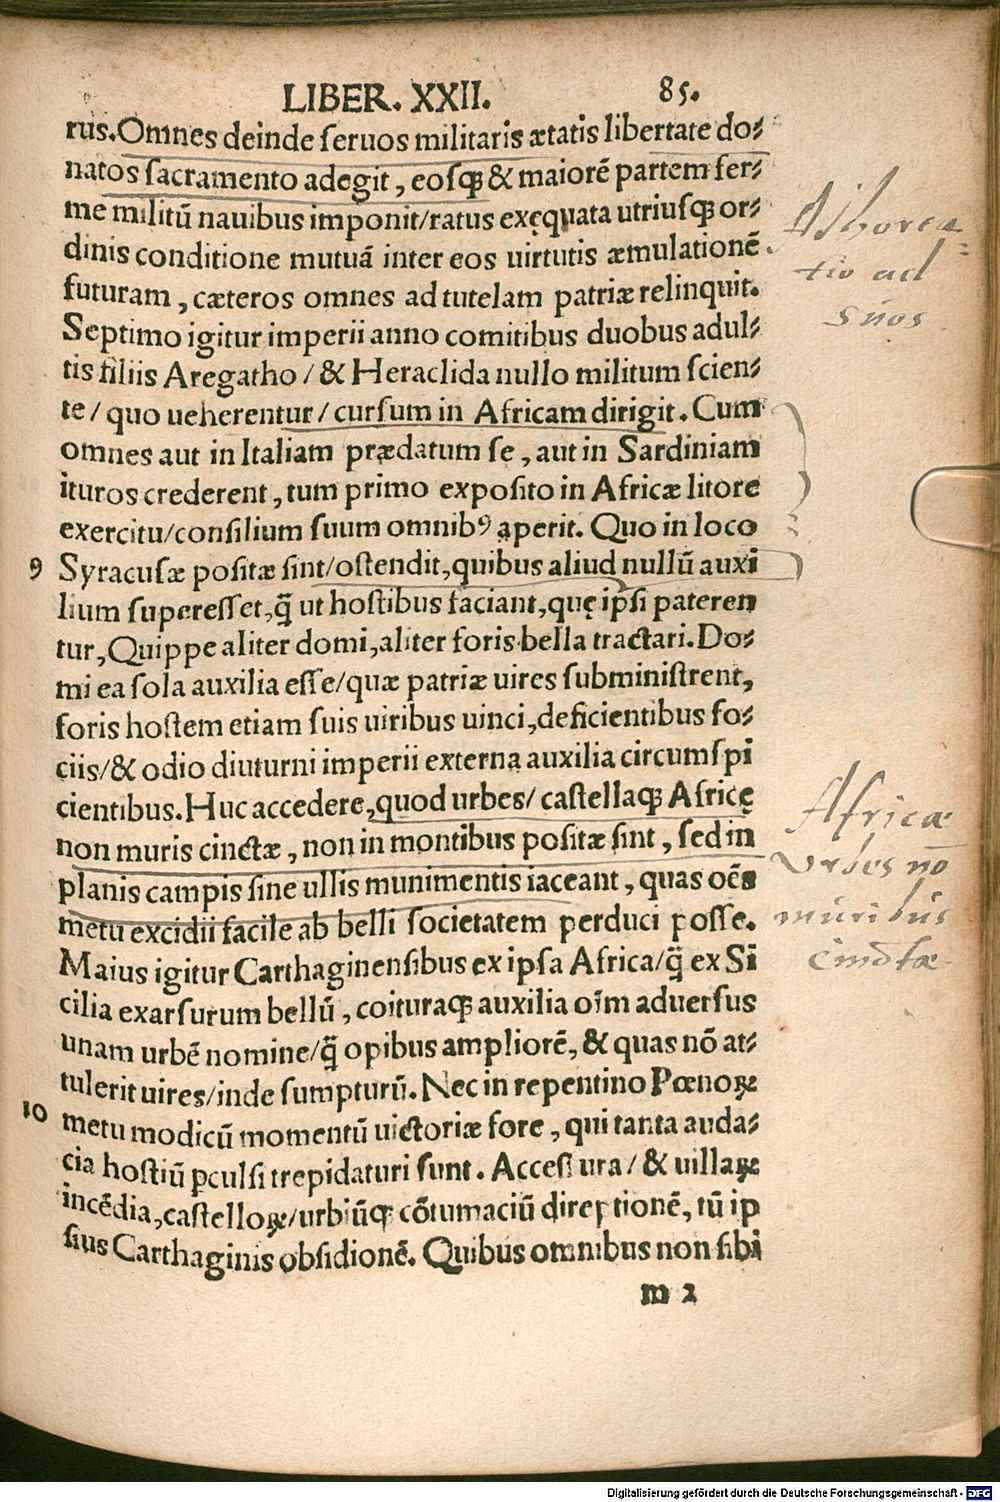 LIBER. XXII. 85.
rus. Omnes deinde ſeruos militaris ætatis libertate do⸗
natos ſacramento adegit, eosq́ꝫ & maiorē partem fer⸗
me militū nauibus imponit/ratus exęquata utriuſqꝫ or⸗
dinis conditione mutuā inter eos uirtutis æmulationē
futuram, cæteros omnes ad tutelam patriæ relinquit.
Septimo igitur imperii anno comitibus duobus adul⸗
tis filiis Aregatho/& Heraclida nullo militum ſcien⸗
te/quo ueherentur/curſum in Africam dirigit. Cum
omnes aut in Italiam prædatum ſe, aut in Sardiniam
ituros crederent, tum primo expoſito in Africæ litore
exercitu/conſilium ſuum omnibꝰ aperit. Quo in loco
9 Syracuſæ poſitæ ſint/oſtendit, quibus aliud nullū auxi
lium ſupereſſet, q̄ ut hoſtibus faciant, quę ipſi pateren
tur, Quippe aliter domi, aliter foris bella tractari. Do⸗
mi ea ſola auxilia eſſe/quæ patriæ uires ſubminiſtrent,
foris hoſtem etiam ſuis uiribus uinci, deficientibus ſo⸗
ciis/& odio diuturni imperii externa auxilia circumſpi
cientibus. Huc accedere, quod urbes/caſtellaqꝫ Africę
non muris cinctæ, non in montibus poſitæ ſint, ſed in
planis campis ſine ullis munimentis iaceant, quas oēs
metu excidii facile ab belli ſocietatem perduci poſſe.
Maius igitur Carthaginenſibus ex ipſa Africa/q̄ ex Si
cilia exarſurum bellū, coituraqꝫ auxilia oīm aduerſus
unam urbē nomine/q̄ opibus ampliorē, & quas nō at⸗
tulerit uires/inde ſumpturū. Nec in repentino Pœnoꝝ
10 metu modicū momentū uictoriæ fore, qui tanta auda⸗
cia hoſtiū ꝑculſi trepidaturi ſunt. Acceſſura/& uillaꝝ
incēdia, caſtelloꝝ/urbiūqꝫ cōtumaciū direptionē, tū ip
ſius Carthaginis obſidionē. Quibus omnibus non ſibi
m 2
Adhorta⸗
tio ad
suos
Africæ
Vrbes nō
muribus
cinctæ
Digitalisierung gefördert durch die Deutsche Forschungsgemeinschaft - DFG